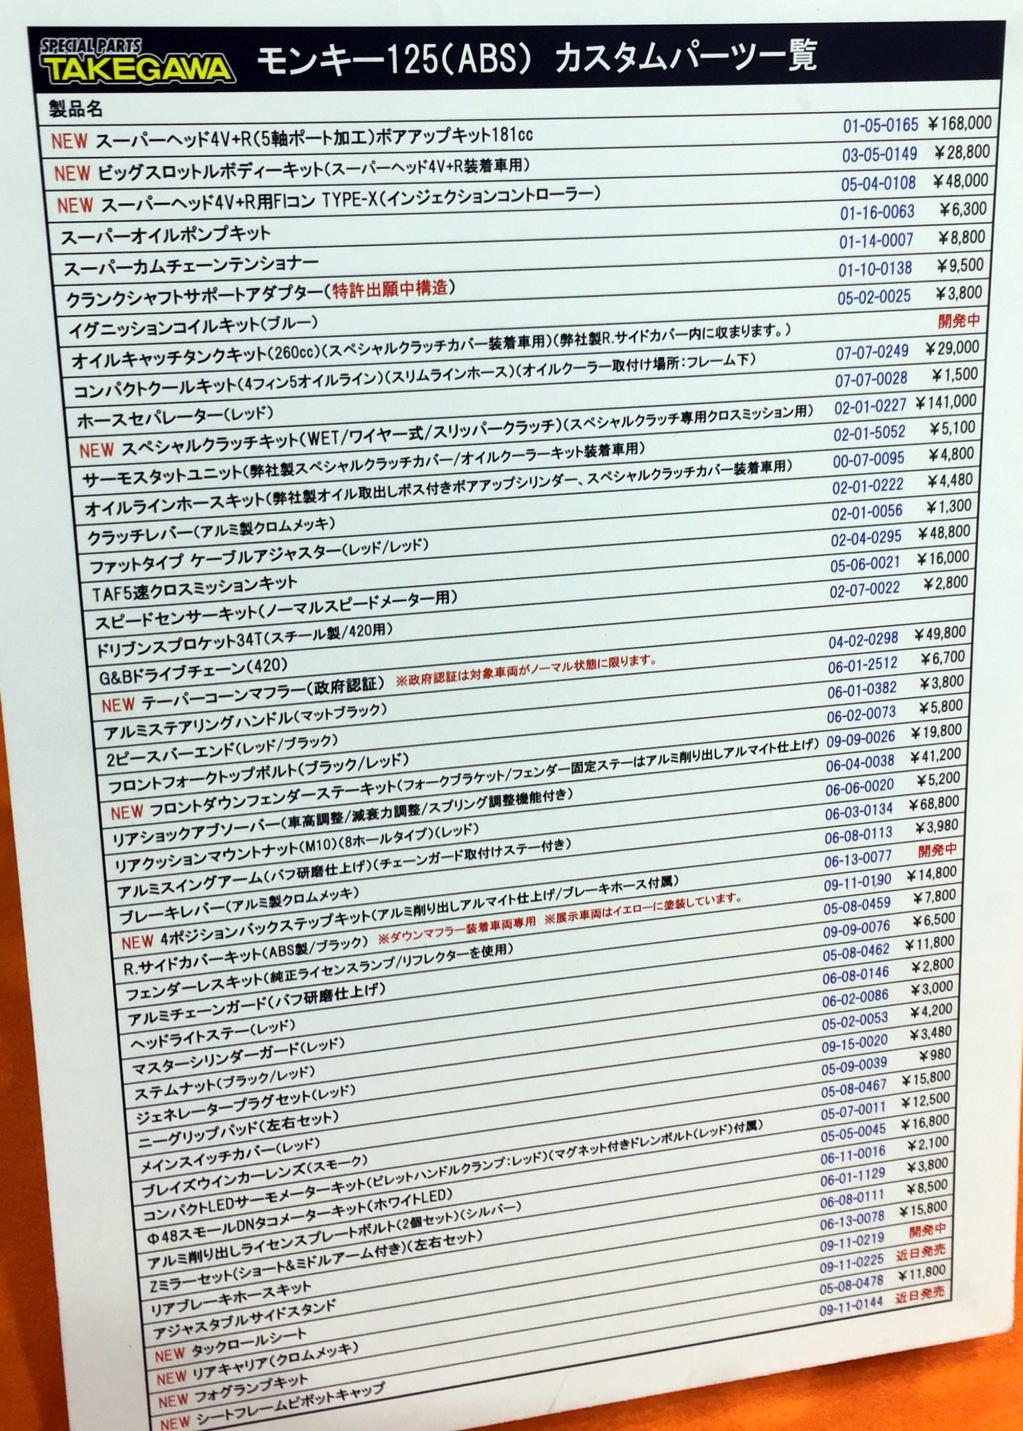 SPECIAL PARTS
TAKEGAWA モンキー125(ABS) カスタムパーツ一覧
製品名
NEW スーパーヘッド4V+R(5軸ポート加工)ボアアップキット181cc 01-05-0165 ¥168,000
NEW ビッグスロットルボディーキット(スーパーヘッド4V+R装着車用) 03-05-0149 ¥28,800
NEW スーパーヘッド4V+R用FIコン TYPE-X(インジェクションコントローラー) 05-04-0108 ¥48,000
スーパーオイルポンプキット 01-16-0063 ¥6,300
スーパーカムチェーンテンショナー 01-14-0007 ¥8,800
クランクシャフトサポートアダプター(特許出願中構造) 01-10-0138 ¥9,500
イグニッションコイルキット(ブルー) 05-02-0025 ¥3,800
オイルキャッチタンクキット(260cc)(スペシャルクラッチカバー装着車用)(弊社製R.サイドカバー内に収まります。) 開発中
コンパクトクールキット(4フィン5オイルライン)(スリムラインホース)(オイルクーラー取付け場所:フレーム下) 07-07-0249 ¥29,000
ホースセパレーター(レッド) 07-07-0028 ¥1,500
NEW スペシャルクラッチキット(WET/ワイヤー式/スリッパークラッチ)(スペシャルクラッチ専用クロスミッション用) 02-01-0227 ¥141,000
サーモスタットユニット(弊社製スペシャルクラッチカバー/オイルクーラーキット装着車用) 02-01-5052 ¥5,100
オイルラインホースキット(弊社製オイル取出しボス付きボアアップシリンダー、スペシャルクラッチカバー装着車用) 00-07-0095 ¥4,800
クラッチレバー(アルミ製クロムメッキ) 02-01-0222 ¥4,480
ファットタイプ ケーブルアジャスター(レッド/レッド) 02-01-0056 ¥1,300
TAF5速クロスミッションキット 02-04-0295 ¥48,800
スピードセンサーキット(ノーマルスピードメーター用) 05-06-0021 ¥16,000
ドリブンスプロケット34T(スチール製/420用) 02-07-0022 ¥2,800
G&Bドライブチェーン(420)
NEW テーパーコーンマフラー(政府認証) ※政府認証は対象車両がノーマル状態に限ります。 04-02-0298 ¥49,800
アルミステアリングハンドル(マットブラック) 06-01-2512 ¥6,700
2ピースバーエンド(レッド/ブラック) 06-01-0382 ¥3,800
フロントフォークトップボルト(ブラック/レッド) 06-02-0073 ¥5,800
NEW フロントダウンフェンダーステーキット(フォークブラケット/フェンダー固定ステーはアルミ削り出しアルマイト仕上げ) 09-09-0026 ¥19,800
リアショックアブソーバー(車高調整/減衰力調整/スプリング調整機能付き) 06-04-0038 ¥41,200
リアクッションマウントナット(M10)(8ホールタイプ)(レッド) 06-06-0020 ¥5,200
アルミスイングアーム(バフ研磨仕上げ)(チェーンガード取付けステー付き) 06-03-0134 ¥68,800
ブレーキレバー(アルミ製クロムメッキ) 06-08-0113 ¥3,980
NEW 4ポジションバックステップキット(アルミ削り出しアルマイト仕上げ/ブレーキホース付属) 06-13-0077 開発中
R.サイドカバーキット(ABS製/ブラック) ※ダウンマフラー装着車両専用 ※展示車両はイエローに塗装しています。 09-11-0190 ¥14,800
フェンダーレスキット(純正ライセンスランプ/リフレクターを使用) 05-08-0459 ¥7,800
アルミチェーンガード(バフ研磨仕上げ) 09-09-0076 ¥6,500
ヘッドライトステー(レッド) 05-08-0462 ¥11,800
マスターシリンダーガード(レッド) 06-08-0146 ¥2,800
ステムナット(ブラック/レッド) 06-02-0086 ¥3,000
ジェネレータープラグセット(レッド) 05-02-0053 ¥4,200
ニーグリップパッド(左右セット) 09-15-0020 ¥3,480
メインスイッチカバー(レッド) 05-09-0039 ¥980
ブレイズウインカーレンズ(スモーク) 05-08-0467 ¥15,800
コンパクトLEDサーモメーターキット(ビレットハンドルクランプ:レッド)(マグネット付きドレンボルト(レッド)付属) 05-07-0011 ¥12,500
Φ48スモールDNタコメーターキット(ホワイトLED) 05-05-0045 ¥16,800
アルミ削り出しライセンスプレートボルト(2個セット)(シルバー) 06-11-0016 ¥2,100
Zミラーセット(ショート&ミドルアーム付き)(左右セット) 06-01-1129 ¥3,800
リアブレーキホースキット 06-08-0111 ¥8,500
アジャスタブルサイドスタンド 06-13-0078 ¥15,800
NEW タックロールシート 09-11-0219 開発中
NEW リアキャリア(クロムメッキ) 09-11-0225 近日発売
NEW フォグランプキット 05-08-0478 ¥11,800
NEW シートフレームピボットキャップ 09-11-0144 近日発売